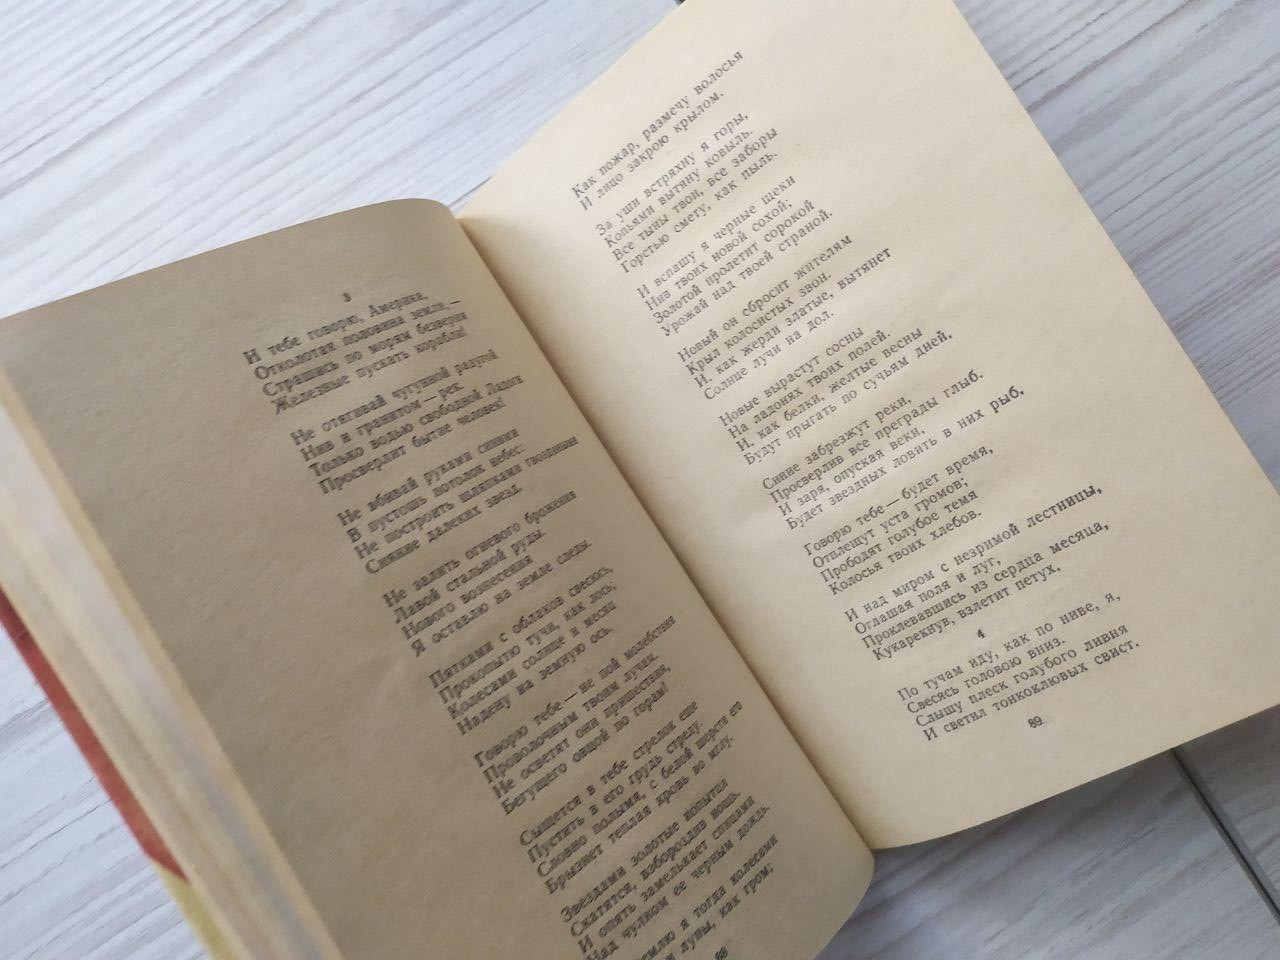 3
И тебе говорю, Америка,
Отколотая половина земли,—
Страшись по морям безверия
Железные пускать корабли!
Не отягивай чугунной радугой
Нив и гранитом — рек.
Только водью свободной Ладоги
Просверлит бытие человек!
Не вбивай руками синими
В пустошь потолок небес:
Не построить шляпками гвоздиными
Сияние далеких звезд.
Не залить огневого брожения
Лавой стальной руды.
Нового вознесения
Я оставлю на земле следы.
Пятками с облаков свесясь,
Прокопытю тучи, как лось;
Колесами солнце и месяц
Надену на земную ось.
Говорю тебе — не пой молебствия
Проволочным твоим лучам.
Не осветят они пришествия,
Бегущего овцой по горам!
Сыщется в тебе стрелок еще
Пустить в его грудь стрелу.
Словно полымя, с белой шерсти его
Брызнет теплая кровь во мглу.
Звездами золотые копытца
Скатятся, взбороздив нощь.
И опять замелькает спицами
Над чулком ее черным дождь.
землю я тогда колесами
и луны, как гром;
88
Как пожар, размечу волосья
И лицо закрою крылом.
За уши встряхну я горы,
Копьями вытяну ковыль.
Все тыны твои, все заборы
Горстью смету, как пыль.
И вспашу я черные щеки
Нив твоих новой сохой;
Золотой пролетит сорокой
Урожай над твоей страной.
Новый он сбросит жителям
Крыл колосистых звон.
И, как жерди златые, вытянет
Солнце лучи на дол.
Новые вырастут сосны
На ладонях твоих полей.
И, как белки, желтые весны
Будут прыгать по сучьям дней.
Синие забрезжут реки,
Просверлив все преграды глыб.
И заря, опуская веки,
Будет звездных ловить в них рыб.
Говорю тебе — будет время,
Отплещут уста громов;
Прободят голубое темя
Колосья твоих хлебов.
И над миром с незримой лестницы,
Оглашая поля и луг,
Проклевавшись из сердца месяца,
Кукарекнув, взлетит петух.
4
По тучам иду, как по ниве, я,
Свесясь головою вниз.
Слышу плеск голубого ливня
И светил тонкоклювых свист.
89